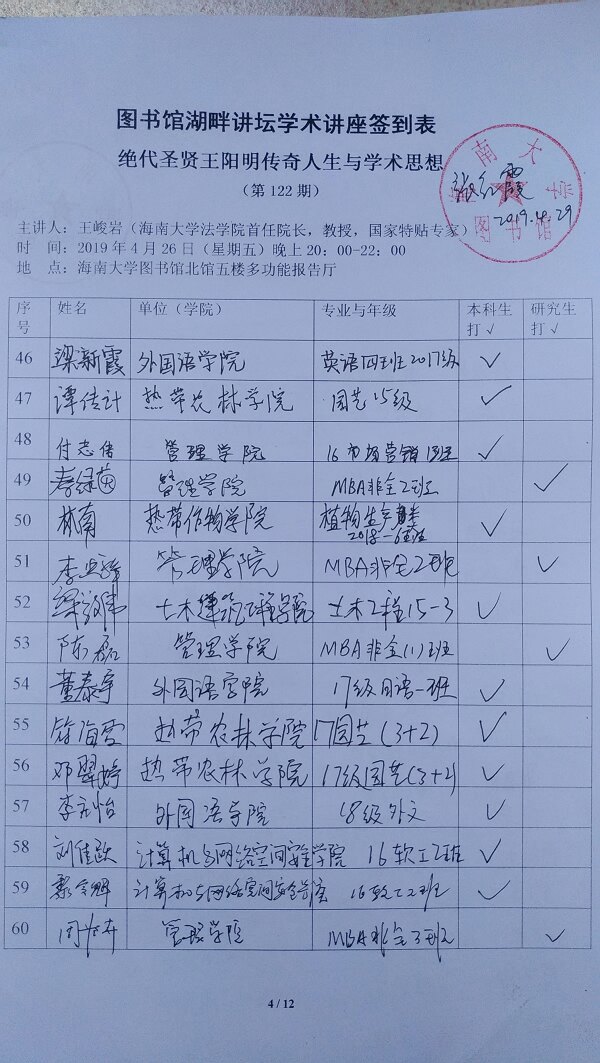 图书馆湖畔讲坛学术讲座签到表
绝代圣贤王阳明传奇人生与学术思想
（第 122 期）
海南大学
图书馆
张红霞
2019.4.29
主讲人：王峻岩（海南大学法学院首任院长，教授，国家特贴专家）
时 间：2019 年 4 月 26 日（星期五）晚上 20：00-22：00
地 点：海南大学图书馆北馆五楼多功能报告厅
序号 姓名 单位（学院） 专业与年级 本科生打√ 研究生打√
46 梁新霞 外国语学院 英语四班2017级 √
47 谭传计 热带农林学院 园艺15级 √
48 付志倩 管理学院 16市场营销1班 √
49 管理学院 MBA非全2班 √
50 林南 热带作物学院 植物生产类 √
51 管理学院 MBA非全2班 √
52 土木建筑工程学院 土木工程15-3 √
53 陈磊 管理学院 MBA非全(1)班 √
54 董泰宇 外国语学院 17级日语一班 √
55 符海雪 热带农林学院 17园艺(3+2) √
56 邓翠婷 热带农林学院 17级园艺(3+2) √
57 外国语学院 18级外文 √
58 刘佳欧 计算机与网络空间安全学院 16软工2班 √
59 计算机与网络空间安全学院 16软工2班 √
60 管理学院 MBA非全3班 √
4 / 12